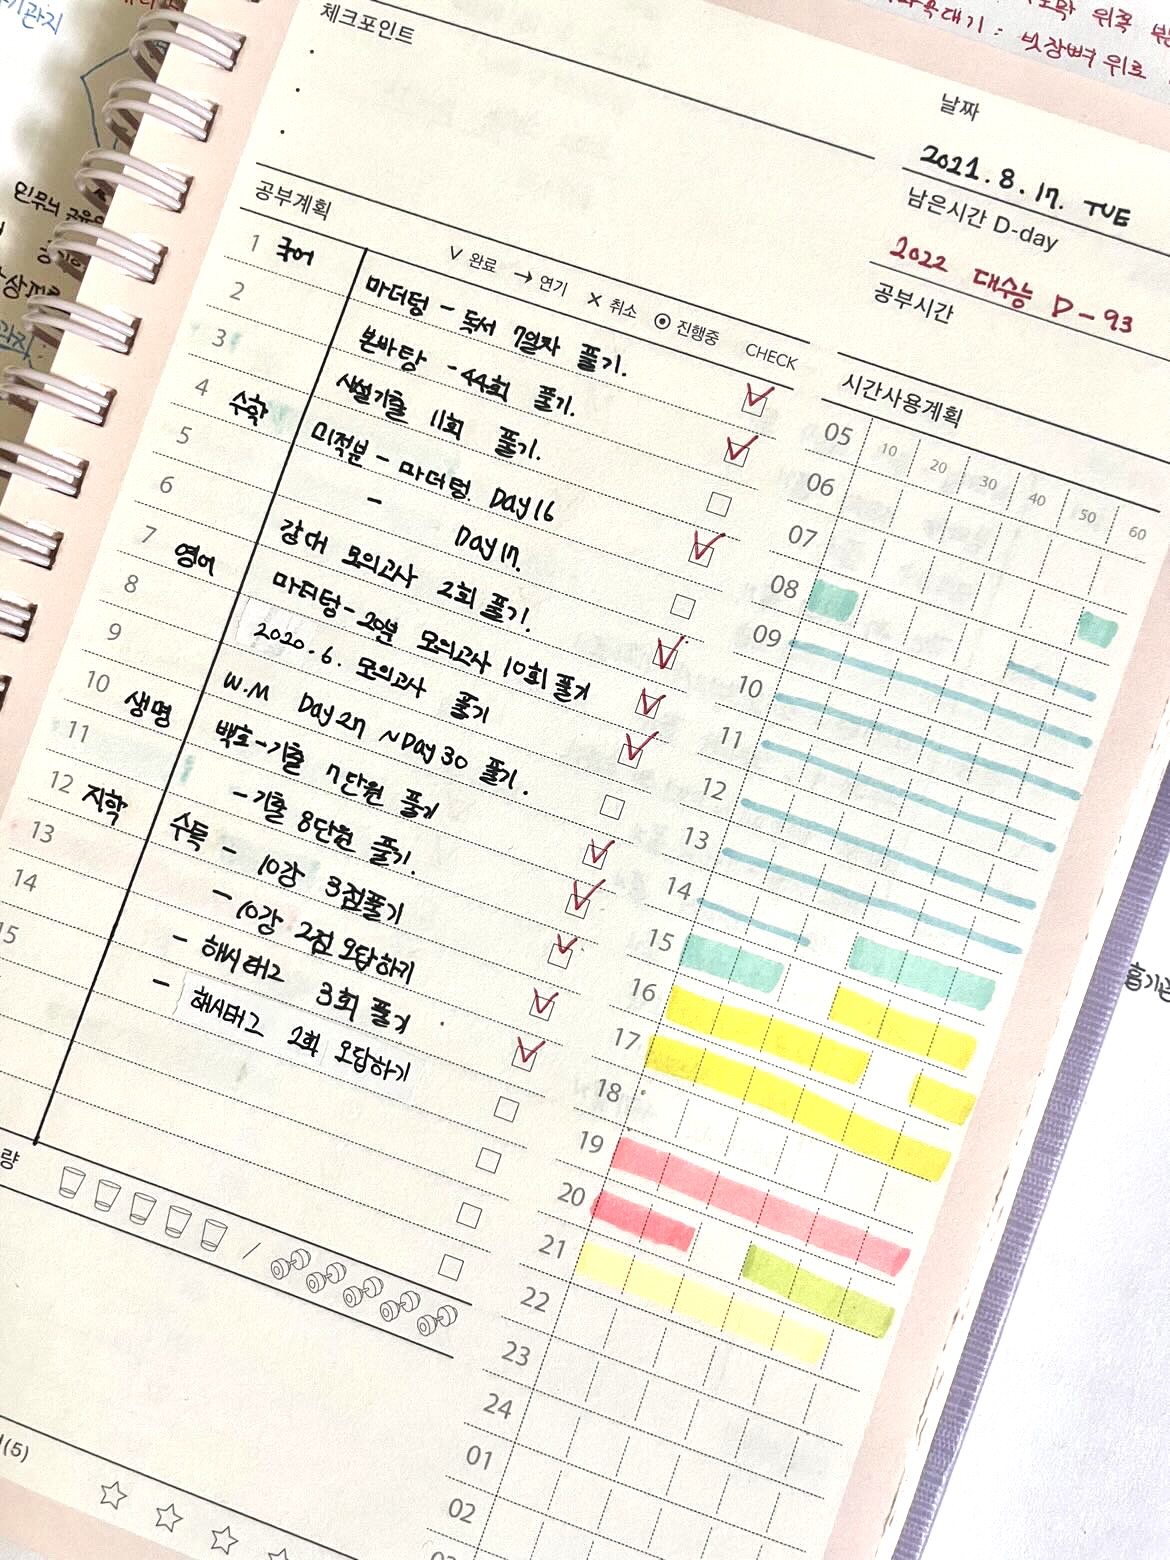 체크포인트
날짜
2021. 8. 17. TUE
남은시간 D-day
2022 대수능 D-93
공부시간
공부계획
V 완료 → 연기 × 취소 ⊙ 진행중 CHECK
1 국어 마더텅 - 독서 7일차 풀기.
2 본바탕 - 44회 풀기.
3 사설기출 11회 풀기.
4 수학 미적분 - 마더텅 Day 16
5 - Day 17.
6 강대 모의고사 2회 풀기!
7 영어 마더텅 - 20분 모의고사 10회 풀기
8 2020. 6. 모의고사 풀기
9 W.M Day 27 ~ Day 30 풀기.
10 생명 백호 - 기출 7단원 풀기
11 - 기출 8단원 풀기.
12 지학 수특 - 10강 3점풀기
13 - 10강 2점 오답하기
14 - 해시태그 3회 풀기
15 - 해시태그 2회 오답하기
량
시간사용계획
10 20 30 40 50 60
05
06
07
08
09
10
11
12
13
14
15
16
17
18
19
20
21
22
23
24
01
02
(5)
위쪽
: 빗장뼈 위로